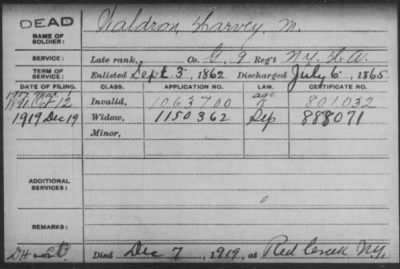 DEAD
NAME OF SOLDIER: Waldron, Harvey, M.
SERVICE: Late rank, Co. G. 9 Reg't N.Y. H. A.
TERM OF SERVICE: Enlisted Sept 3, 1862 Discharged July 6, 1865
DATE OF FILING. CLASS. APPLICATION NO. LAW. CERTIFICATE NO.
Invalid, 1063700 801032
1919 Dec 19 Widow, 1150362 888071
Minor,
ADDITIONAL SERVICES:
REMARKS:
Died Dec 7, 1919, at Red Creek N.Y.